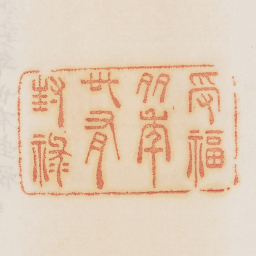 受福
多年
世有
封祿